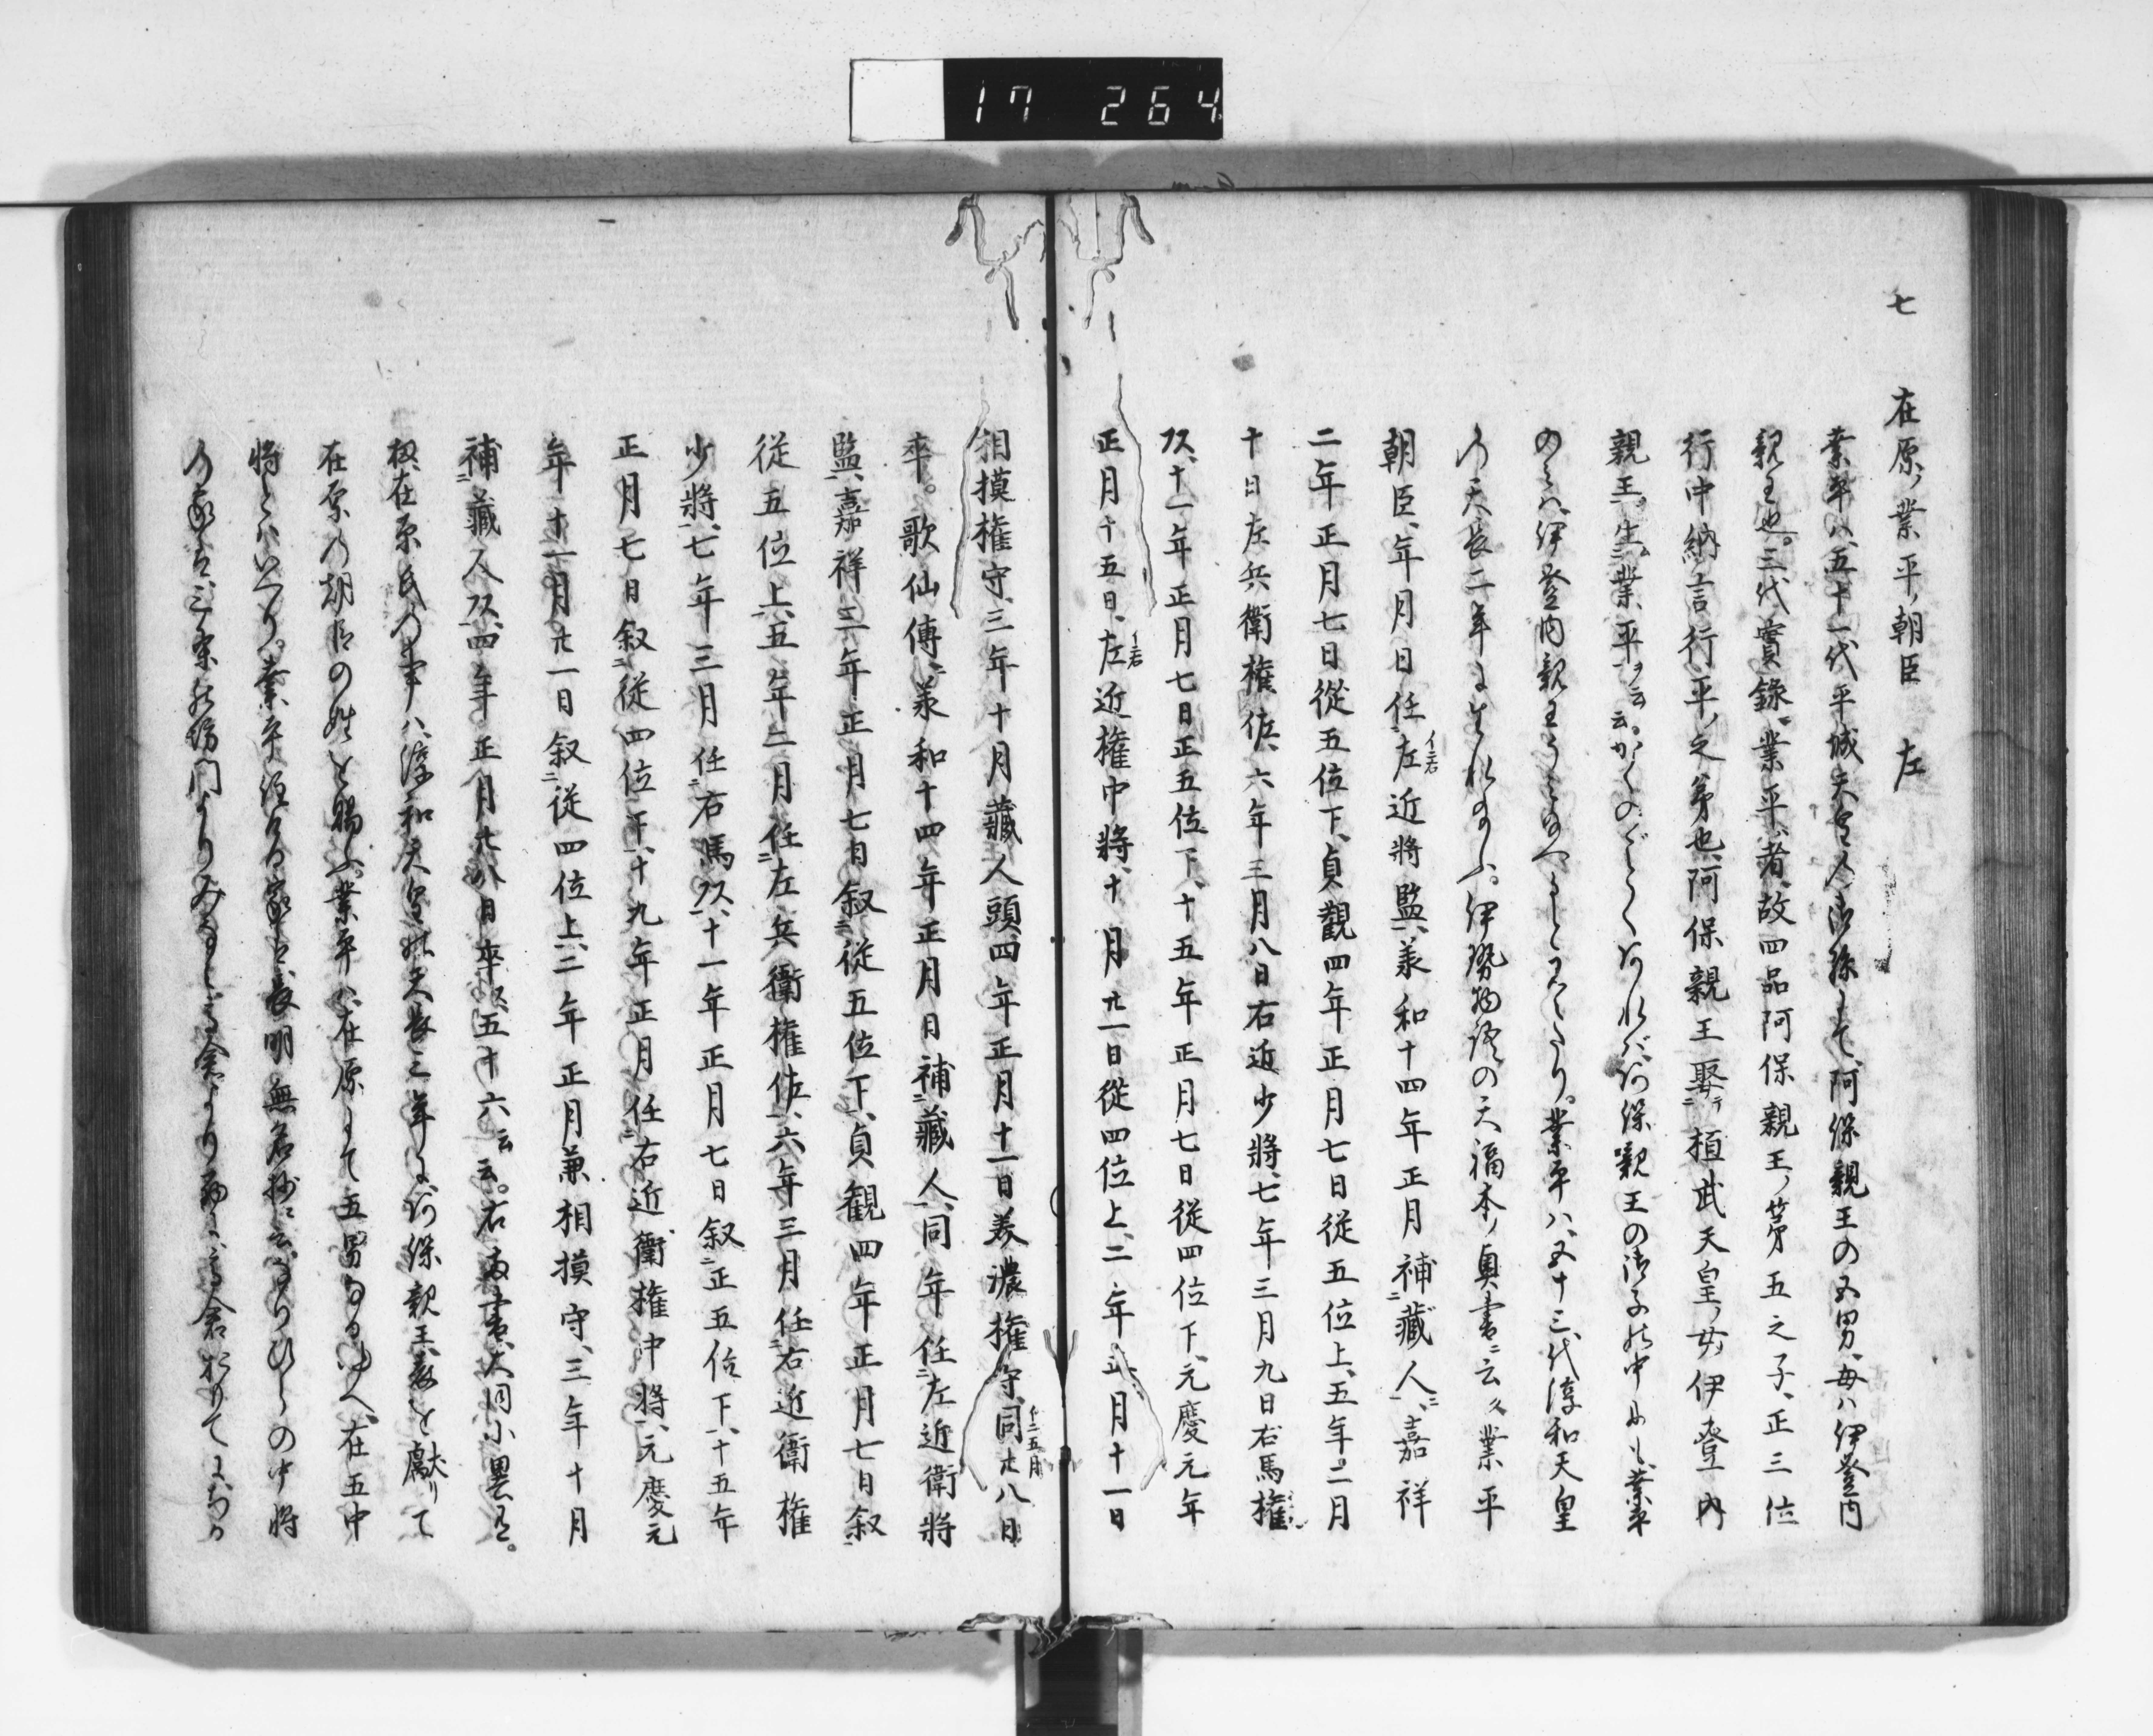 17 264
七
在原ノ業平ノ朝臣 左
業平ハ、五十一代平城天皇ノ御孫にて、阿保親王の五男、母ハ伊登内
親王也。三代實録、業平ハ者、故四品阿保親王ノ第五之子、正三位
行中納言行平ノ之弟也、阿保親王娶テ桓武天皇ノ女伊登内
親王、生業平ヲ云云。かくのごとくあれバ、阿保親王の御子の中にも、業平
のミハ、伊登内親王うミ
り天長二年にむまれ給ふ。伊勢物語の天福本ノ奥書ニ云ク業平
朝臣、年月日任左イニ右近將監、羕和十四年正月補藏人、嘉祥
二年正月七日從五位下、貞觀四年正月七日従五位上、五年二月
十日左兵衛権佐、六年三月八日右近少將、七年三月九日右馬権
頭、十一年正月七日正五位下、十五年正月七日從四位下、元慶元年
正月十五日、左イ右近権中將、十一月廿一日從四位上、二年正月十一日
相摸権守、三年十月藏人頭、四年正月十一日美濃権守、同廿八日イニ五月
卒。歌仙傳、羕和十四年正月日補藏人、同年任左近衛將
監、嘉祥二年正月七日叙従五位下、貞観四年正月七日叙
従五位上、五年二月任左兵衛権佐、六年三月任右近衛権
少將、七年三月任右馬頭、十一年正月七日叙正五位下、十五年
正月七日叙従四位下、十九年正月任右近衛権中將、元慶元
年十一月廿一日叙従四位上、二年正月兼相摸守、三年十月
補藏人頭、四年正月廿八日卒、五十六云云。右両書、大同小異也。
扨、在原氏の事ハ、淳和天皇の天長三年に、阿保親王、表を獻りて
在原の朝臣の姓を賜ふ、業平ハ在原にて五男なるゆへ、在五中
將とハいへり。業平住ける家ハ、長明無名抄ニ云、なりひらの中將
の家は、三条の坊門よりみなミ、高倉より西に、高倉おもてにちか